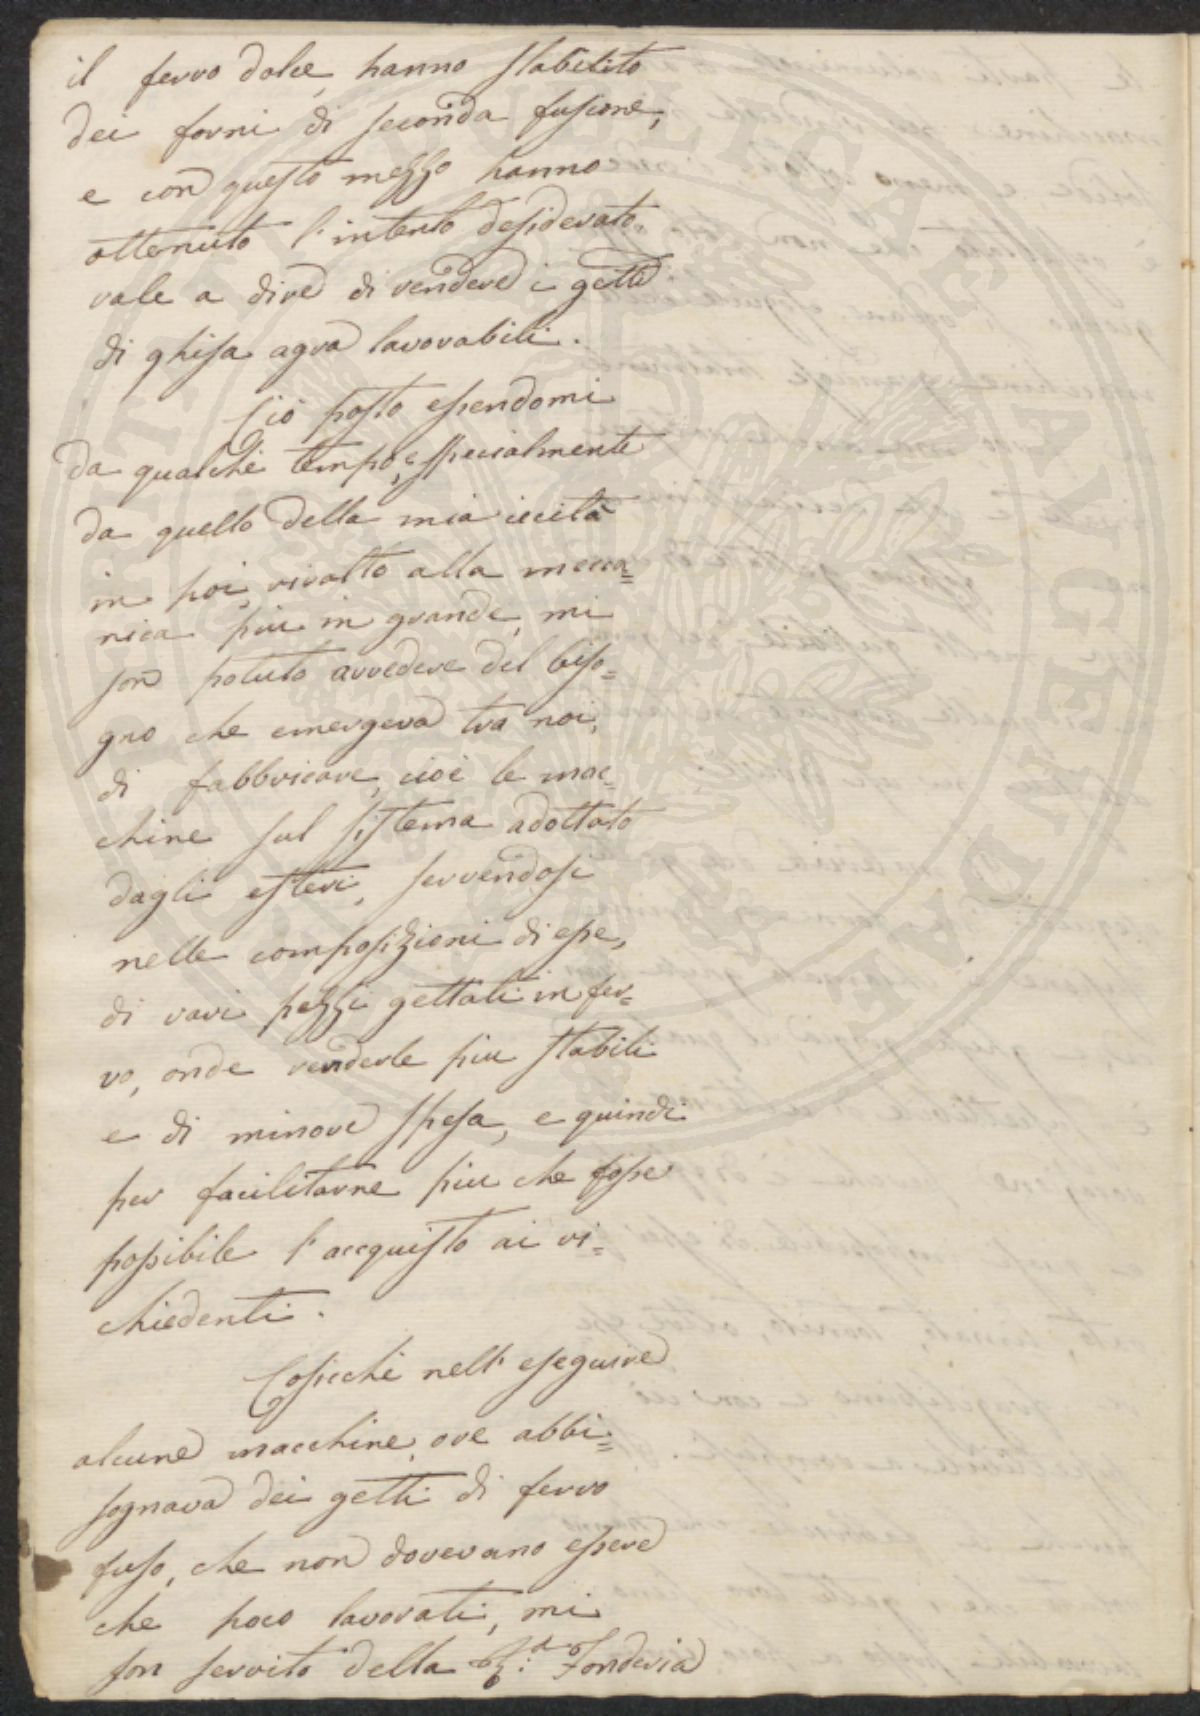 il ferro dolce, hanno stabilito
dei forni di seconda fusione,
e con questo mezzo hanno
ottenuto l'intento desiderato,
vale a dire di rendere i getti
di ghisa agra lavorabili.
Ciò posto essendomi
da qualche tempo, e specialmente
da quello della mia
in poi, rivolto alla mecca=
nica più in grande, mi
son potuto avvedere del biso=
gno che emergeva tra noi,
di fabbricare, cioè le mac=
chine sul sistema adottato
dagli esteri, servendosi
nelle composizioni di esse,
di varii pezzi gettati in fer=
ro, onde renderle più stabili
e di minore spesa, e quindi
per facilitarne più che fosse
possibile l'accquisto ai ri=
chiedenti.
Cosicchè nell'eseguire
alcune macchine, ove abbi=
sognava dei getti di ferro
fuso, che non dovevano essere
che poco lavorati, mi
son servito della R.a Fonderia
PVBLICAE
AVCENDAE